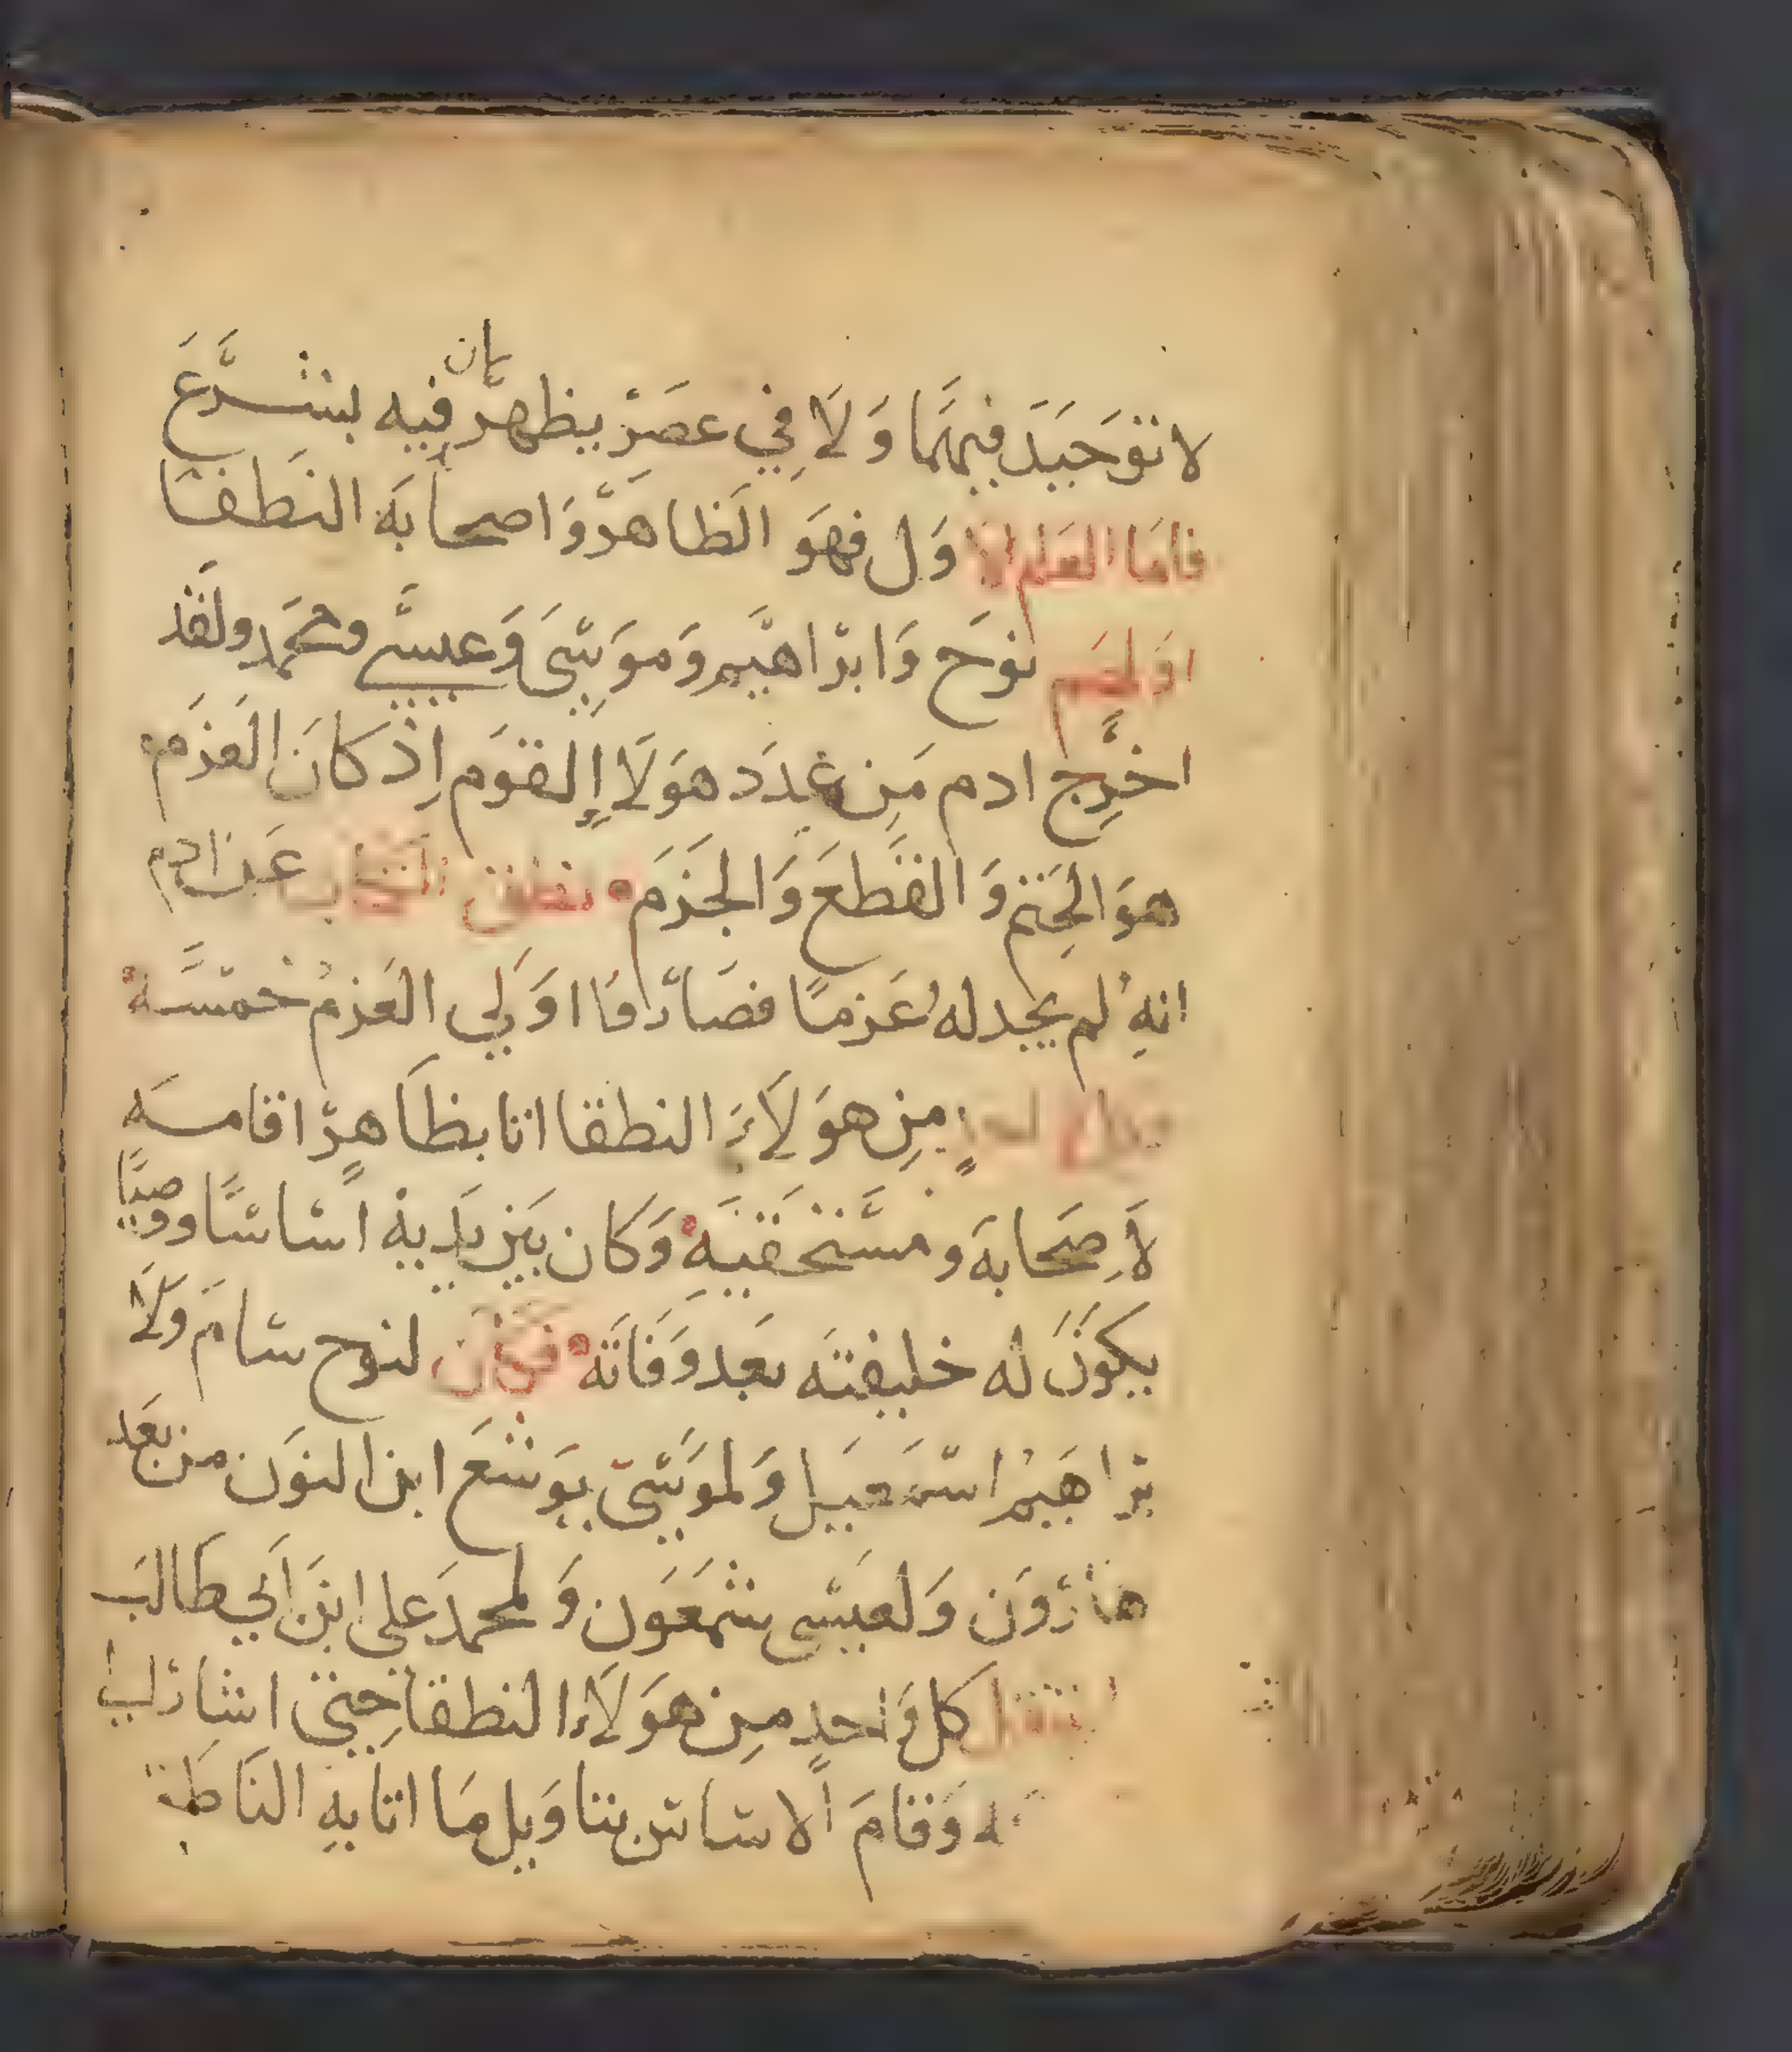 كان
لا توحيد فيهما ولا في عصر يظهر فيه بشرع
فاما العلم الاول فهو الظاهر واصحابه النطقا
اولهم نوح وابراهيم وموسى وعيسى ومحمد ولقد
اخرج ادم من عدد هولا القوم اذ كان العزم
هو الحتم والقطع والجزم نطق الكتاب عن ادم
انه لم يجد له عزما فصاروا اولي العزم خمسة
من هولاء النطقا اتا بظاهر اقامه
لاصحابه ومستحقيه وكان بين يديه اساسا ووصيا
يكون له خليفته بعد وفاته فكان لنوح سام ولا
براهيم اسمعيل ولموسى يوشع ابن النون من بعد
هارون ولعيسى شمعون ولمحمد علي ابن ابي طالب
كل واحد من هولاء النطقا حتى اشار لب
وقام الاساس بتاويل ما اتا به الناطق